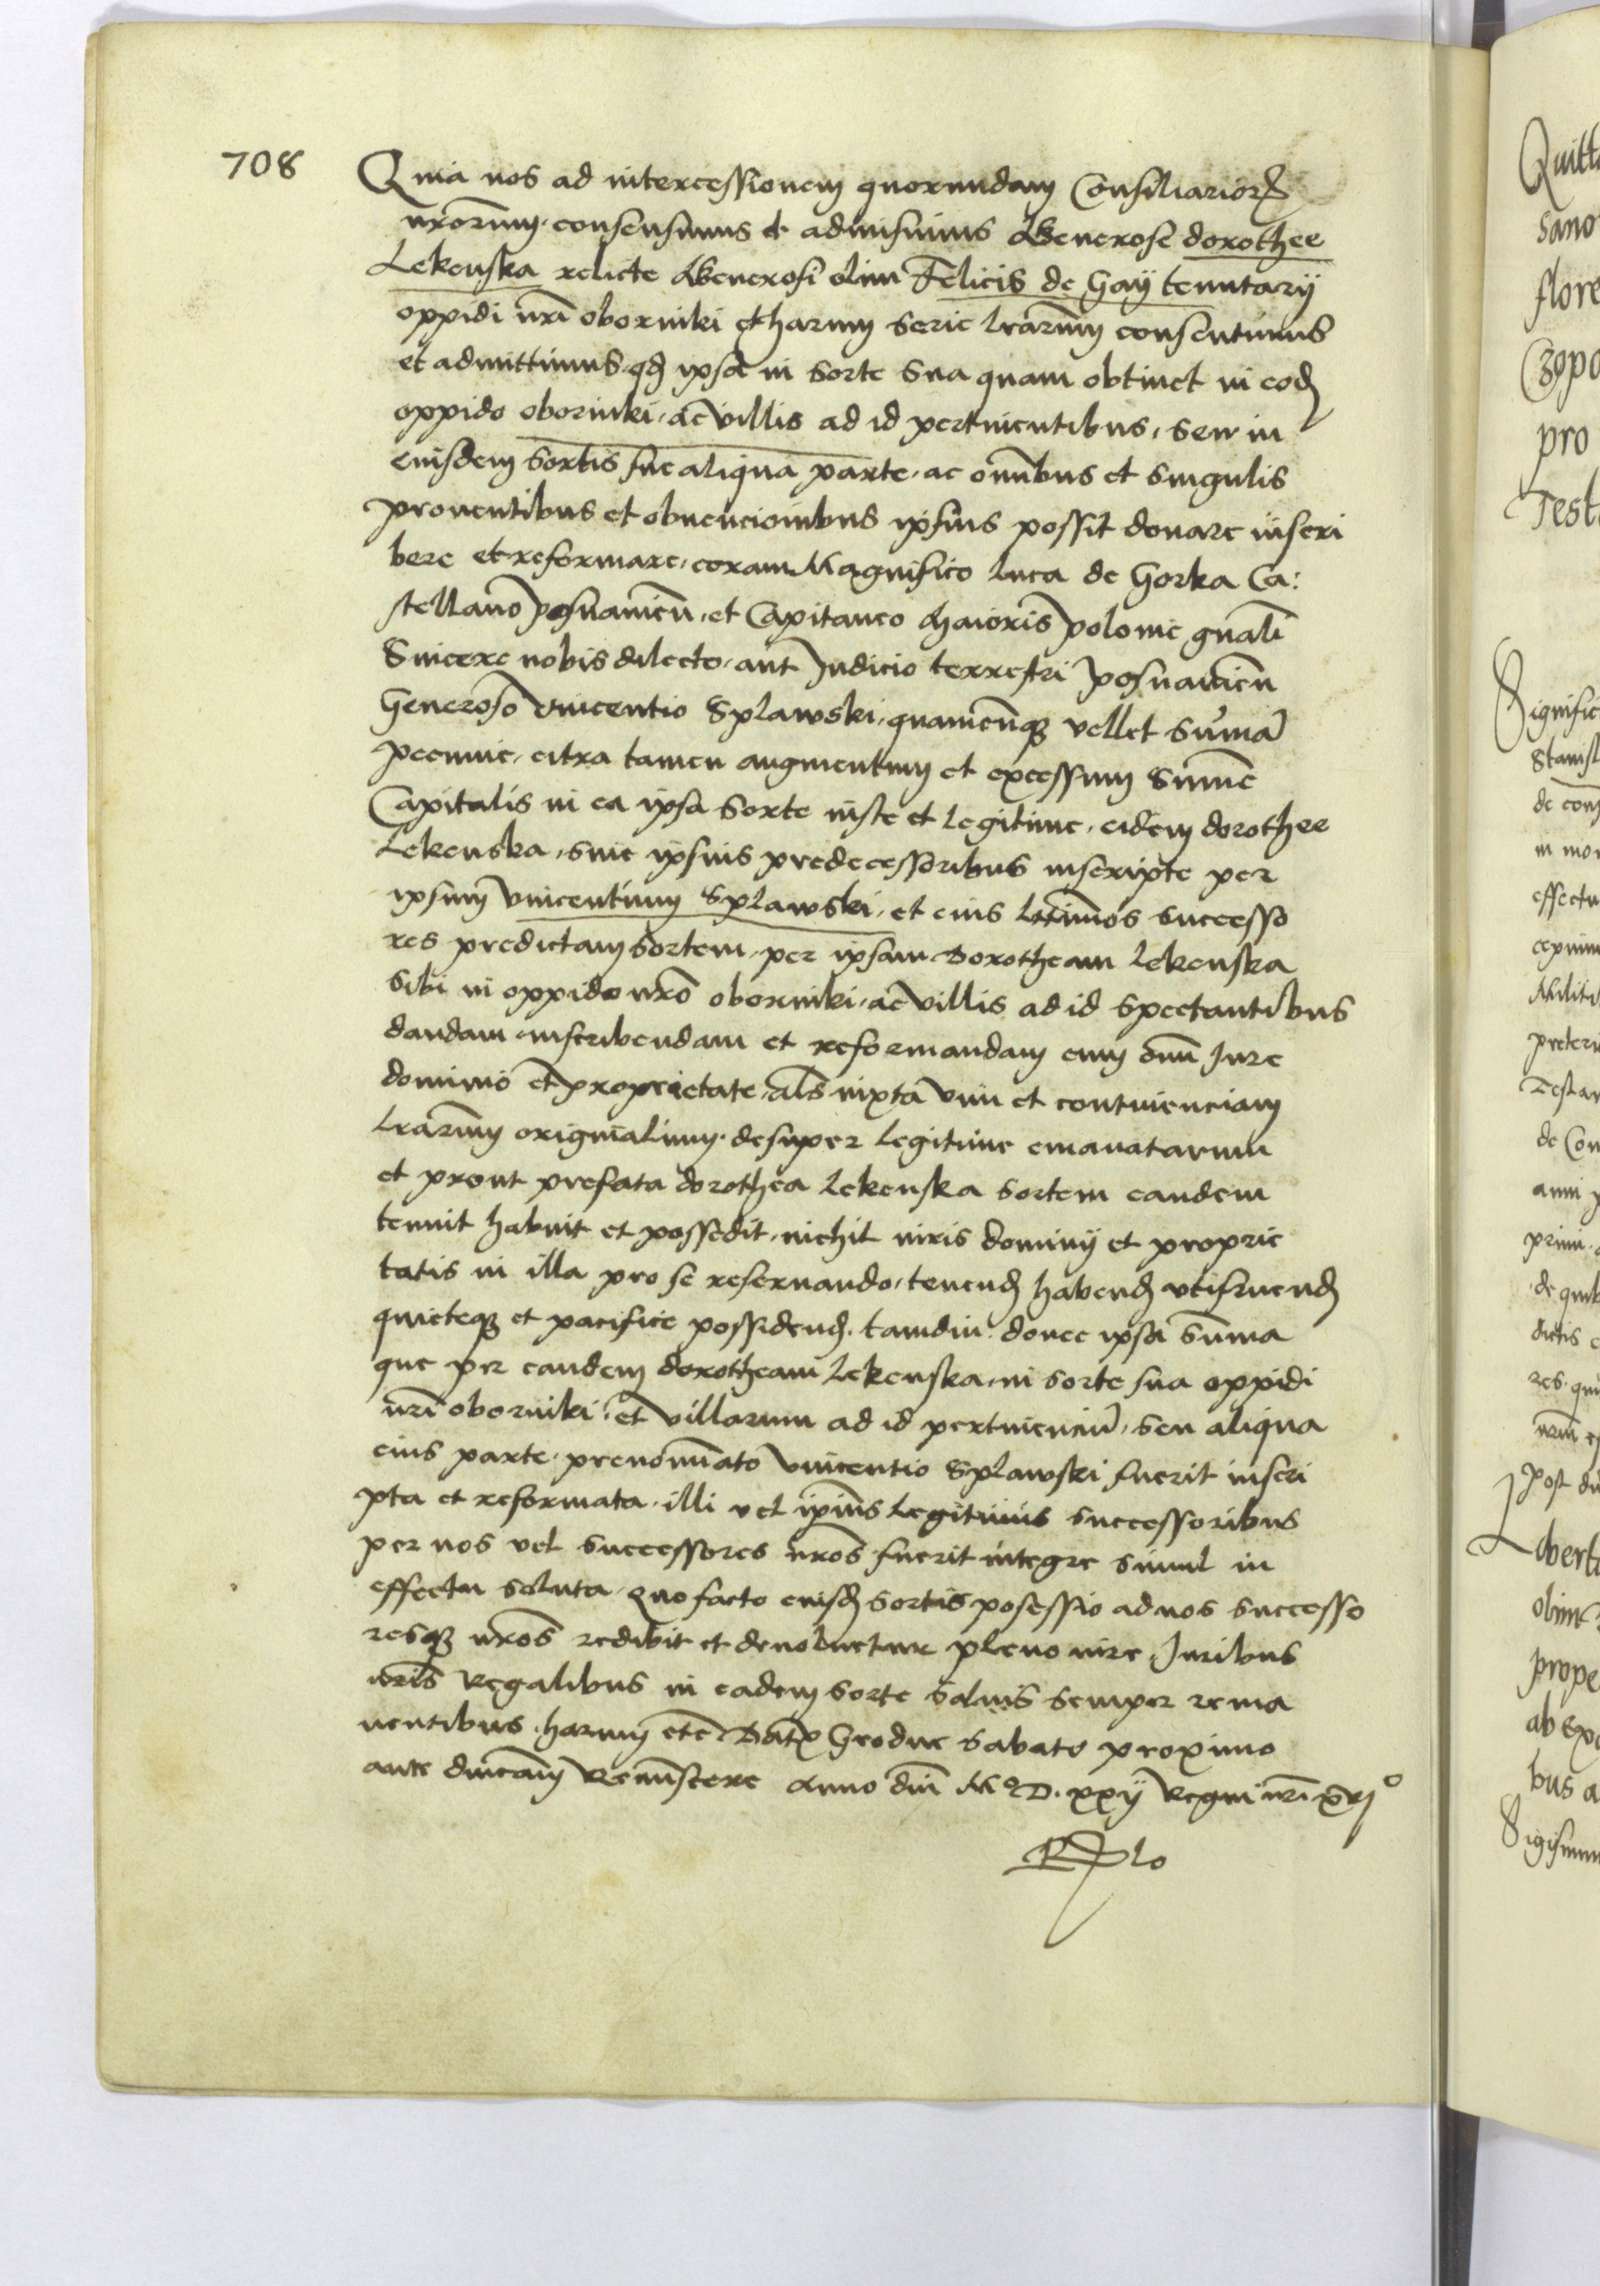 708
Quia nos ad intercessionem quorundam Consiliarior
nrorum. consensimus et admisimus Generose dorothee
Lekenska relicte Generosi olim Felicis de Gaÿ tenutarÿ
oppidi nri oborniki et harum serie lrarum consentimus
et admittimus qd ipsa in sorte sua quam obtinet in eod
oppido oborniki, ac villis ad id pertinentibus, seu in
eiusdem sortis sue aliqua parte, ac omnibus et singulis
prouentibus et obuencionibus ipsius possit donare inscri
bere et reformare, coram Magnifico Luca de Gorka Ca:
stellano posnanien, et Capitaneo Maioris polonie gnali
Sincere nobis dilecto, aut Judicio terrestri posnanien
Generoso vincentio Splawski, quamcunq vellet suma
pecunie, citra tamen augmentum et excessum sume
Capitalis in ea ipsa sorte iuste et legitime, eidem dorothee
Lekenska, siue ipsius predecessoribus inscripte per
ipsum vincentium Splawski, et eius ltimos successo
res predictam sortem, per ipsam Dorotheam Lekenska
sibi in oppido nro oborniki, ac villis ad id spectantibus
dandam inscribendam et reformandam cum omni Jure
dominio et proprietate, als iuxta vim et continenciam
lrarum originalium. desuper legitime emanatarum
et prout prefata dorothea Lekenska sortem eandem
tenuit habuit et possedit, nichil iuris dominÿ et proprie
tatis in illa pro se reseruando, tenend habend utifruend
quieteq et pacifice possidend. tamdiu donec ipsa suma
que per eandem dorotheam Lekenska, in sorte sua oppidi
nri oborniki, et villarum ad id pertinenciu, seu aliqua
eius parte. prenominato vincentio Splawski fuerit inscri
pta et reformata. illi vel ipius legitimis successoribus
per nos vel successores nros fuerit integre simul in
effectu soluta. Quo facto eiusd sortis posessio ad nos successo
resq nros redibit et deuoluetur pleno iure, Juribus
nris Regalibus in eadem sorte saluis semper rema
nentibus. harum etc Dat Grodne sabato proximo
ante dnicam Reminiscere Anno dni M D. xxÿ Regni nri xvj°